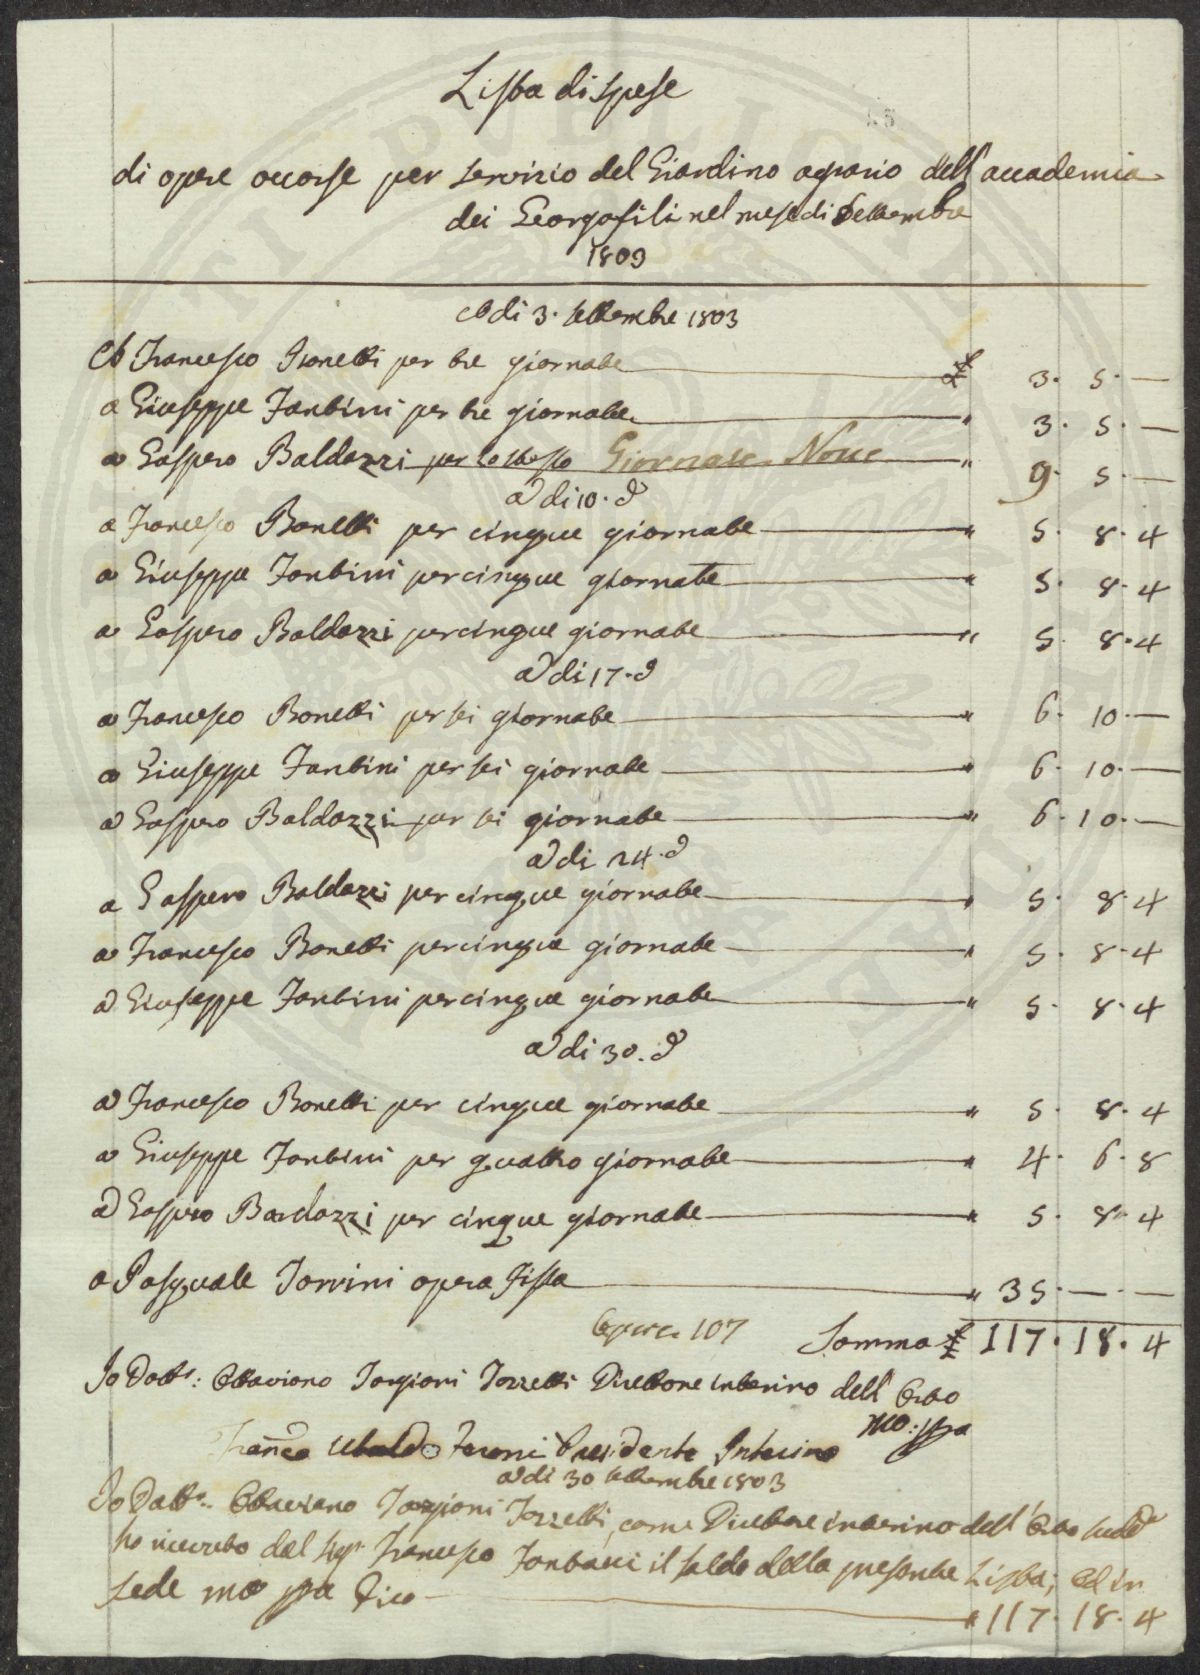 Lista di spese
di opere occorse per servizio del Giardino agrario dell'accademia
dei Georgofili nel mese di Settembre
1803
A di 3. settembre 1803
A Francesco Bonetti per tre giornate £ 3. 5. —
a Giuseppe Fantini per tre giornate " 3. 5. —
a Gaspero Baldazzi per lo stesso Giornate Nove " 9. 5. —
a di 10. d
a Francesco Bonetti per cinque giornate " 5. 8. 4
a Giuseppe Fantini per cinque giornate " 5. 8. 4
a Gaspero Baldazzi per cinque giornate " 5. 8. 4
a di 17. d
a Francesco Bonetti per sei giornate " 6. 10. —
a Giuseppe Fantini per sei giornate " 6. 10. —
a Gaspero Baldazzi per sei giornate " 6. 10. —
a di 24. d
a Gaspero Baldazzi per cinque giornate " 5. 8. 4
a Francesco Bonetti per cinque giornate " 5. 8. 4
a Giuseppe Fantini per cinque giornate " 5. 8. 4
a di 30. d
a Francesco Bonetti per cinque giornate " 5. 8. 4
a Giuseppe Fantini per quattro giornate " 4. 6. 8
a Gaspero Bardazzi per cinque giornate " 5. 8. 4
a Pasquale Tonini opera fissa " 35. — . —
Opere 107 Somma £ 117. 18. 4
Io Dott: Ottaviano Targioni Tozzetti Direttore interino dell'Orto
mo: ppa
Franco Ubaldo Feroni Presidente Interino
a di 30 settembre 1803
Io Dott. Ottaviano Targioni Tozzetti, come Direttore interino dell'Orto sudd
ho ricevuto dal Sigr Francesco il saldo della presente Lista; ed in
fede mo ppa Dico " 117. 18. 4